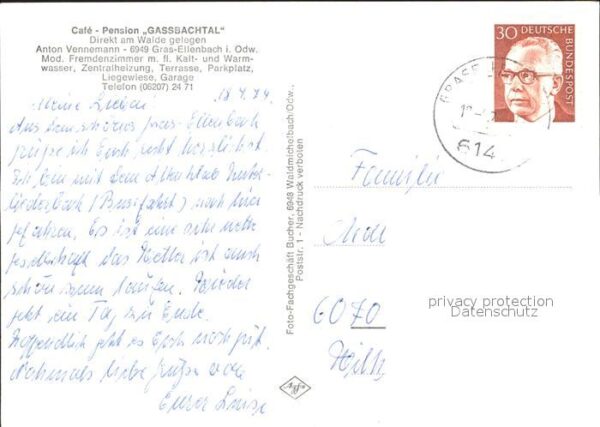 Café - Pension „GASSBACHTAL"
Direkt am Walde gelegen
Anton Vennemann - 6949 Gras-Ellenbach i. Odw.
Mod. Fremdenzimmer m. fl. Kalt- und Warm-
wasser, Zentralheizung, Terrasse, Parkplatz,
Liegewiese, Garage
Telefon (06207) 24 71
Meine Lieben 18.4.74
Aus dem schönen Gras-Ellenbach
grüße ich Euch recht herzlichst.
Ich bin mit dem
(Busfahrt) nach hier
gefahren. Es ist eine sehr nette
Gesellschaft das Wetter ist auch
schön zum laufen. Wieder
geht ein Tag zu Ende.
Hoffendlich geht es Euch noch gut.
Nochmals liebe Grüße von
Eurer Luise
Foto-Fachgeschäft Bucher, 6948 Waldmichelbach/Odw.,
Poststr. 1 - Nachdruck verboten
Agfa
30 DEUTSCHE
BUNDESPOST
614
Familie
6070
privacy protection
Datenschutz